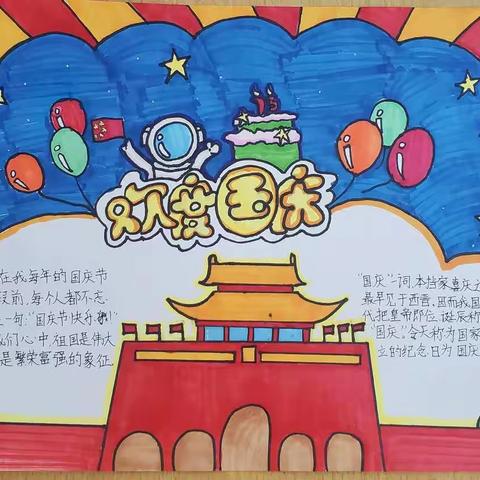 欢度国庆
在我每年的国庆节
前,每个人都不忘
一句:“国庆节快乐!”
们心中,祖国是伟大
是繁荣富强的象征
“国庆”一词,本指家喜庆之
最早见于西晋,因而我国
代把皇帝即位、诞辰称
“国庆”。今天称为国家
立的纪念日为国庆